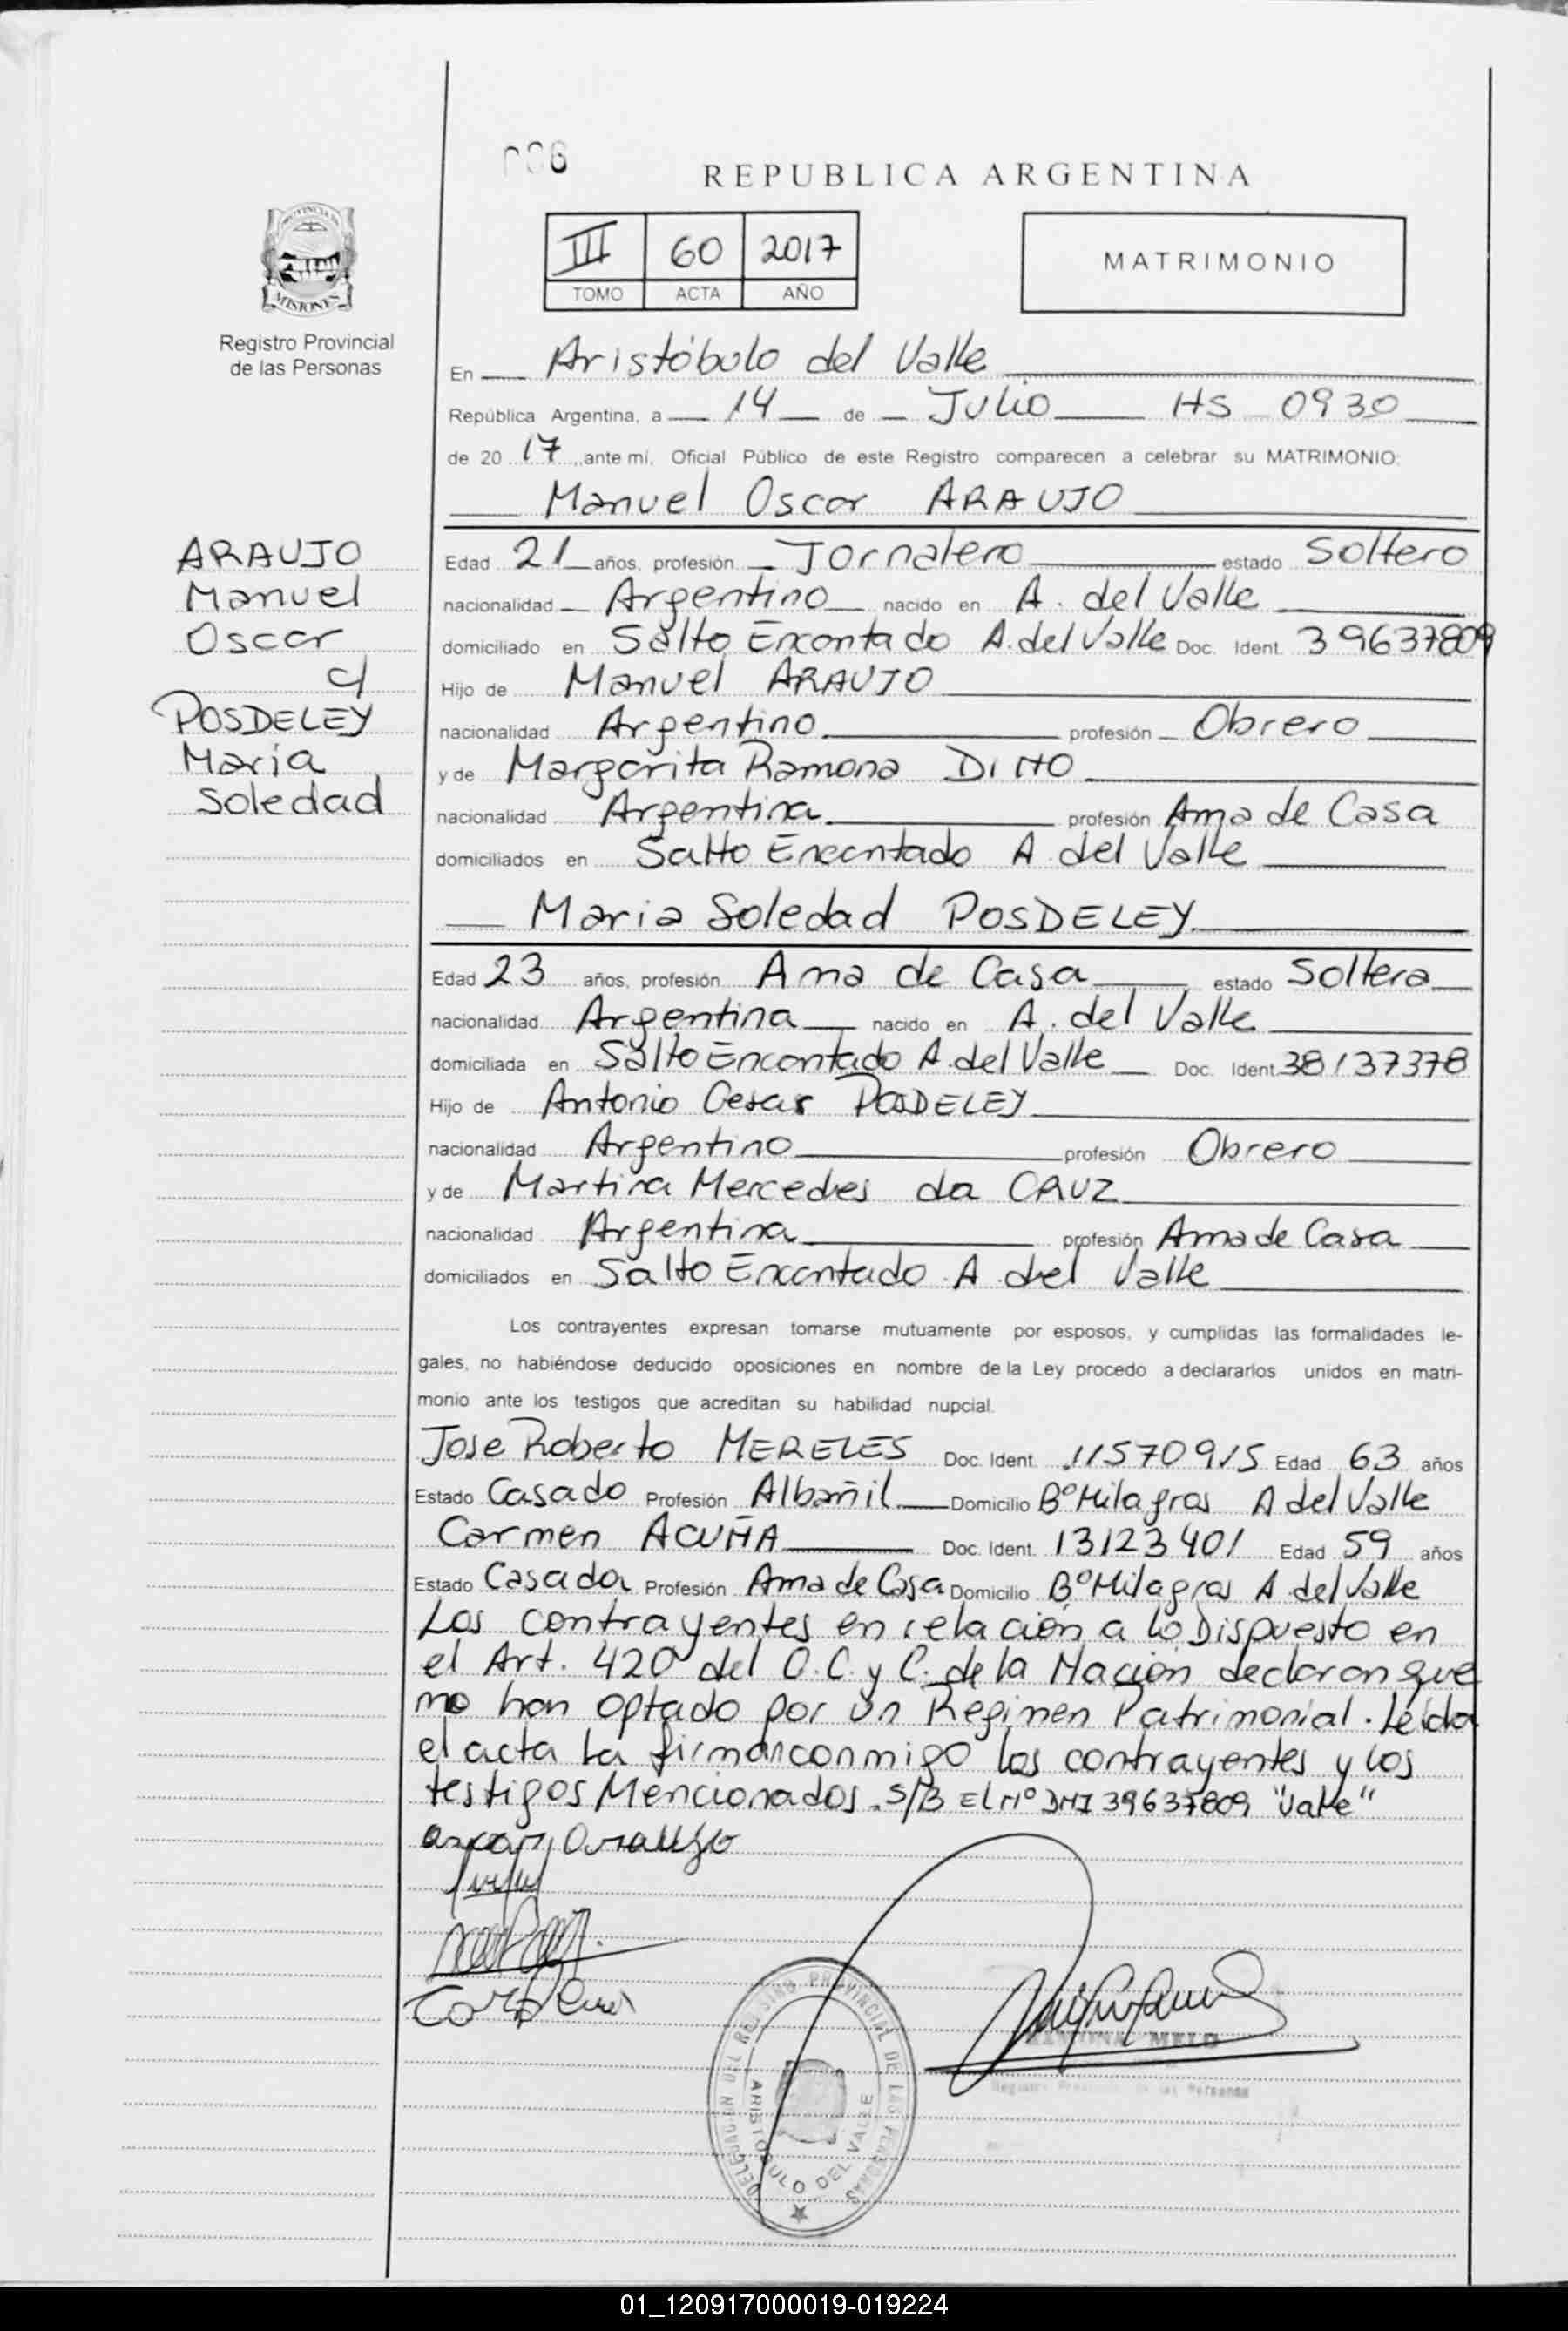 006
REPUBLICA ARGENTINA
PROVINCIA DE
MISIONES
Registro Provincial
de las Personas
III 60 2017
TOMO ACTA AÑO
MATRIMONIO
En Aristóbulo del Valle
República Argentina, a 14 de Julio HS 0930
de 20 17 ,ante mí, Oficial Público de este Registro comparecen a celebrar su MATRIMONIO:
Manuel Oscar ARAUJO
ARAUJO
Manuel
Oscar
c/
POSDELEY
María
Soledad
Edad 21 años, profesión Jornalero estado Soltero
nacionalidad Argentino nacido en A. del Valle
domiciliado en Salto Encantado A. del Valle Doc. Ident. 39637809
Hijo de Manuel ARAUJO
nacionalidad Argentino profesión Obrero
y de Margarita Ramona DINO
nacionalidad Argentina profesión Ama de Casa
domiciliados en Salto Encantado A. del Valle
Maria Soledad POSDELEY
Edad 23 años, profesión Ama de Casa estado Soltera
nacionalidad Argentina nacido en A. del Valle
domiciliada en Salto Encantado A. del Valle Doc. Ident. 38137378
Hijo de Antonio Cesar POSDELEY
nacionalidad Argentino profesión Obrero
y de Martina Mercedes da CRUZ
nacionalidad Argentina profesión Ama de Casa
domiciliados en Salto Encantado A. del Valle
Los contrayentes expresan tomarse mutuamente por esposos, y cumplidas las formalidades le-
gales, no habiéndose deducido oposiciones en nombre de la Ley procedo a declararlos unidos en matri-
monio ante los testigos que acreditan su habilidad nupcial.
Jose Roberto MERELES Doc. Ident. 11570915 Edad 63 años
Estado Casado Profesión Albañil Domicilio Bº Milagros A del Valle
Carmen ACUÑA Doc. Ident. 13123401 Edad 59 años
Estado Casada Profesión Ama de Casa Domicilio Bº Milagros A del Valle
Los contrayentes en relación a lo Dispuesto en
el Art. 420 del C.C. y C. de la Nación declaran que
no han optado por un Regimen Patrimonial. Leída
el acta la firman conmigo los contrayentes y los
testigos Mencionados. S/B El Nº DNI 39637809 "Vale"
oscar Araujo
DELEGACION DEL REGISTRO PROVINCIAL DE LAS PERSONAS
ARISTOBULO DEL VALLE
RAMONA MELO
Registro Provincial de las Personas
01_120917000019-019224